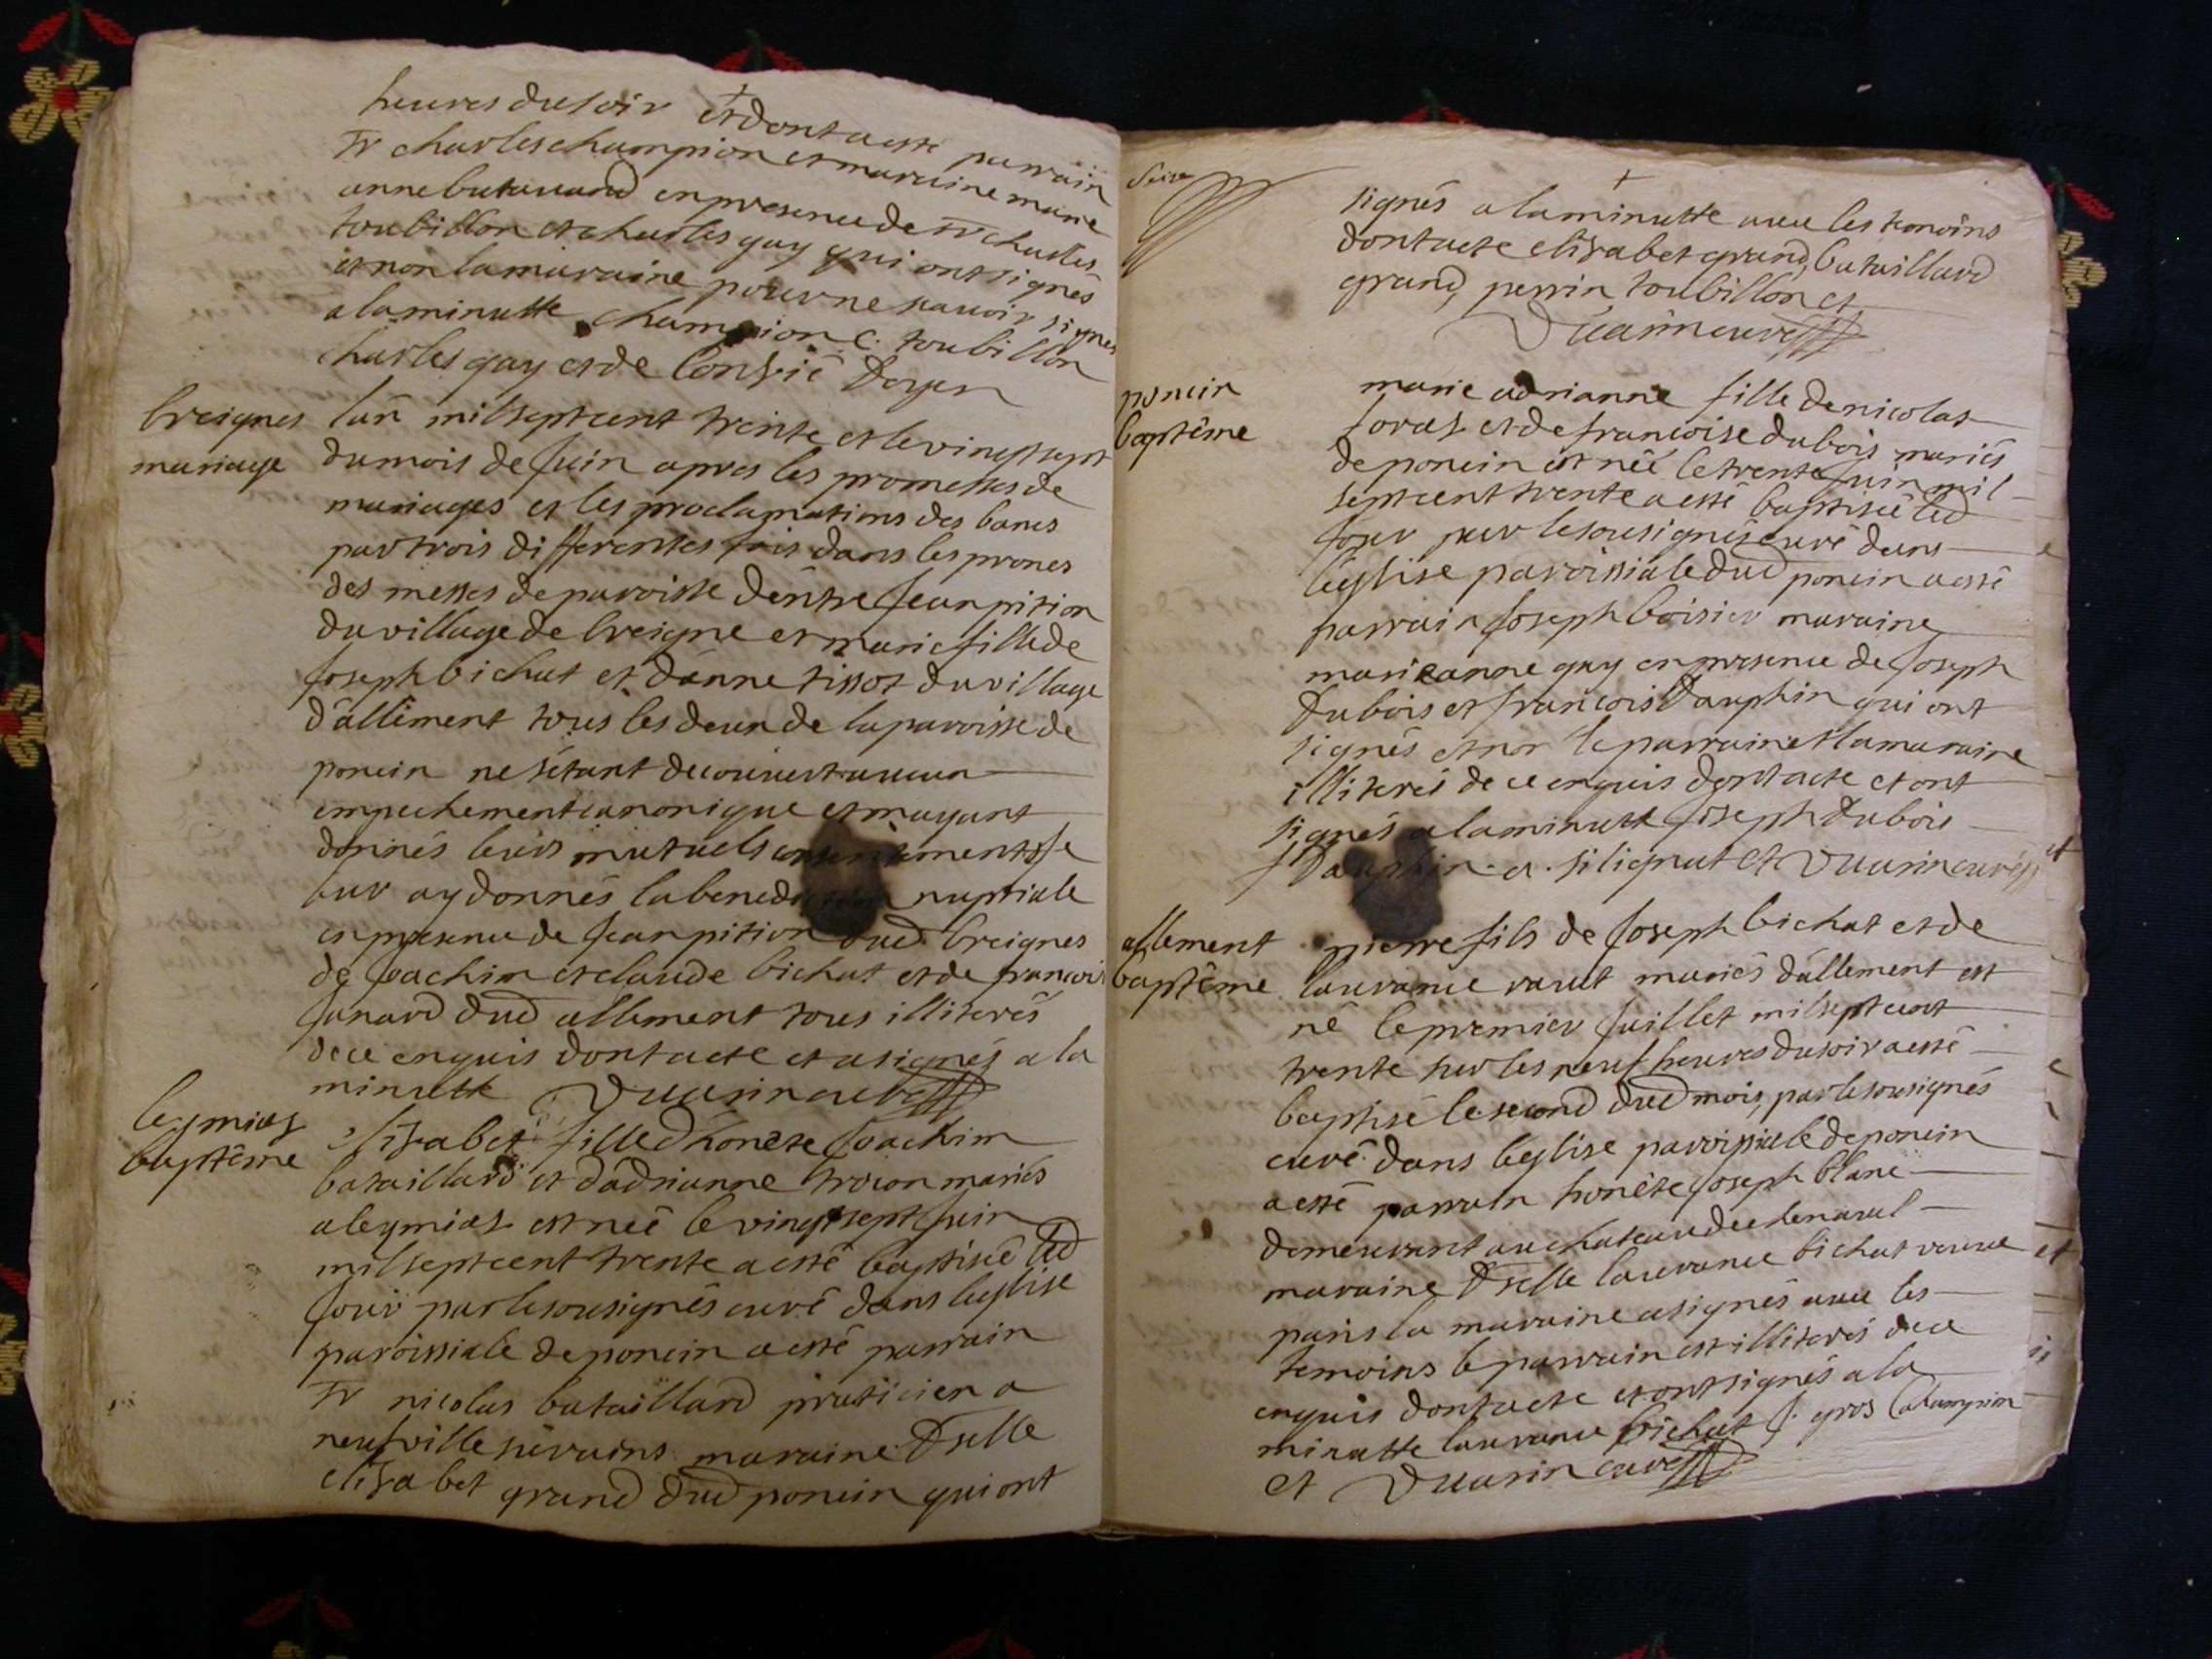 heures du soir et dont a esté parrain
Sr charles champion et maraine marie
anne butavand en presence de Sr charles
toubillon et charles guy qui ont signés
et non la maraine pour ne scavoir signer
a la minutte champion c. toubillon
charles guy et de Doyen
breignes
mariage
lan mil sept cent trente et le vingt sept
du mois de Juin apres les promesses de
mariages et les proclamations des bancs
par trois differentes fois dans les prones
des messes de paroisse dêntre Jean pition
du village de breigne et marie fille de
Joseph bichat et dânne tissot du village
d'allêment tous les deux de la paroisse de
poncin ne sétant decouvert aucun
empechement canonique et mayant
donnés leurs mutuels consentements Je
leur ay donnés la benediction nuptiale
en presence de Jean pition dud breignes
de Joachim et claude bichat et de francois
Janard dud allement tous illiterés
de ce enquis dont acte et a signés a la
minutte Vuarin curé
leymias
baptême
elisabet fille d'honête Joachim
bataillard et dâdrianne troccon mariés
a leymias est neê le vingt sept Juin
mil sept cent trente a esté baptiseê led
Jour par le sousignés curê dans leglise
paroissiale de poncin a esté parrain
Sr nicolas bataillard praticien a
neufville maraine Dselle
elisabet grand dud poncin qui ont
Seize
signés a la minutte avec les temoins
dont acte elisabet grand, bataillard
grand, perrin toubillon et
Vuarin curé
poncin
baptême
marie adrianne fille de nicolas
et de francoise dubois mariés
de poncin est neê le trente Juin mil
sept cent trente a esté baptiseê led
Jour par le sousignés curê dans
lêglise paroissiale dud poncin a esté
parrain Joseph boisier maraine
marie anne guy en presence de Joseph
Dubois et francois Dauphin qui ont
signés et non le parrain et la maraine
illiterés de ce enquis dont acte et ont
signés a la minutte Joseph dubois
f Dauphin a. silignat et Vuarin curé
allement
baptême
pierre fils de Joseph bichat et de
laurance ravet mariés dâllement est
nê le premier Juillet mil sept cent
trente sur les neuf heures du soir a esté
baptisé le second dud mois, par le sousignés
curê dans leglise paroissiale de poncin
a esté parrain honête Joseph blanc
demeurant au chateau de chenavel
maraine Dselle laurance bichat veuve
paris la maraine a signés avec les
temoins le parrain est illiterés de ce
enquis dont acte et ont signés a la
minutte laurance bichat J. gros champion
et Vuarin curé